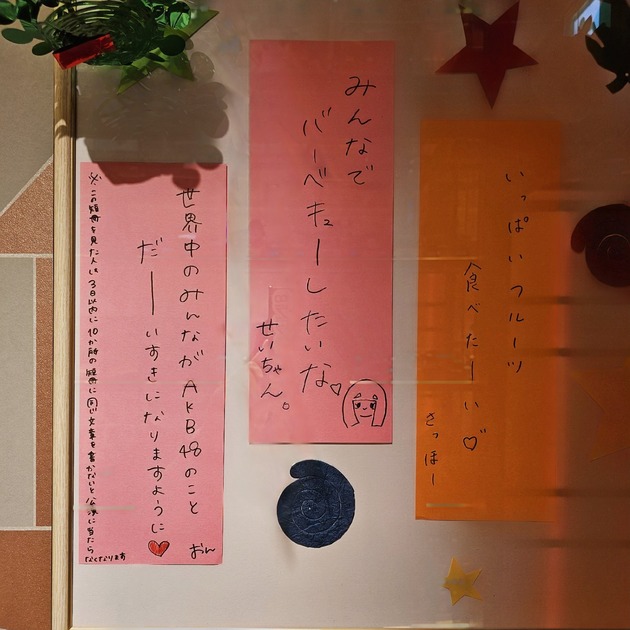 いっぱいフルーツ
食べたーい♡
さっほー
みんなで
バーベキューしたいな♡
せいちゃん。
世界中のみんながAKB48のこと
だーいすきになりますように❤
おん
※この短冊を見た人は3日以内に10か所の短冊に同じ文章を書かないと公演に当たら
なくなります